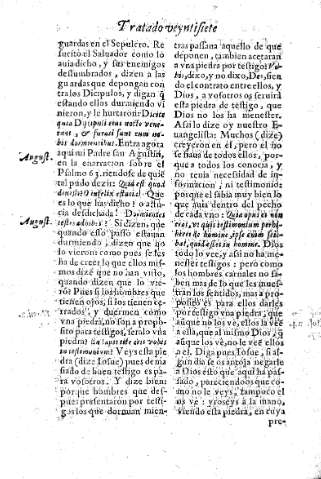 Tratado veyntisiete
guardas en el Sepulcro. Re
sucitó el Salvador como lo
auia dicho, y sus enemigos
deslumbrados, dizen a las
guardas que depongan con
tra los Dicipulos, y digan q̃
estando ellos durmiendo vi
nieron, y le hurtaron: Dicite
quia Discipuli eius nocte vene-
runt, & furati sunt eum no-
bis dormientibus. Entra agora
aqui mi Padre san Agustin,
August.
en la enarracion sobre el
Psalmo 63. riendose de quie
tal pudo dezir: Quid est quod
Que
es lo que has dicho? o astu-
cia desdichada! Dormientes
August.
testes adhibes? Si dizen, que
quando esso passò estauan
durmiendo, dizen que no
lo vieron: como pues se les
ha de creer lo que ellos mis
mos dizẽ que no han visto,
quando dizen que lo vie-
ron? Pues si los hombres que
tienen ojos, si los tienen ce-
rrados, y duermen como
vna piedra, no son a propo-
sito para testigos, serálo vna
piedra?
Veys esta pie
dra (dize Iosue) pues de ma
siado de buen testigo es pa
ra vosotros. Y dize bien:
por que hombres que des-
pues presentaron por testi-
gos los que dormian mien-
tras passaua aquello de que
deponen, tambien acetaran
a vna piedra por testigo:
dixo, y no dixo, Dei, sien
do el contrato entre ellos, y
Dios, a vosotros os seruirá
esta piedra de testigo, que
Dios no los ha menester.
Assi lo dize oy nuestro E-
uangelista: Muchos (dize)
creyeron en él, pero el no
se fiaua de todos ellos, por-
que a todos los conocia, y
no tenia necesidad de in-
formacion, ni testimonios
porque el sabia muy bien lo
que auia dentro del pecho
de cada vno: Quia opus ei non
erat, vt quis testimonium perhi-
beret de homine, ipse enim scie-
bat, quid esset in homine. Dios
todo lo vee, y assi no ha me
nester testigos: pero como
los hombres carnales no sa-
ben mas de lo que les mues-
tran los sentidos, mas a pro-
posito es para ellos darles
por testigo vna piedra, que
aunque no los vè, ellos la vẽ
a ella, que al mismo Dios, q̃
aũque los vè, no le veẽ ellos
a el. Diga pues Iosue, si al-
gun dia se os antoja negarle
a Dios esto que aqui ha pas-
sado, pareciendoos que co-
mo no le veys, tampoco el
os vè: yros eys a la mano,
viendo esta piedra, en cuya
pre-